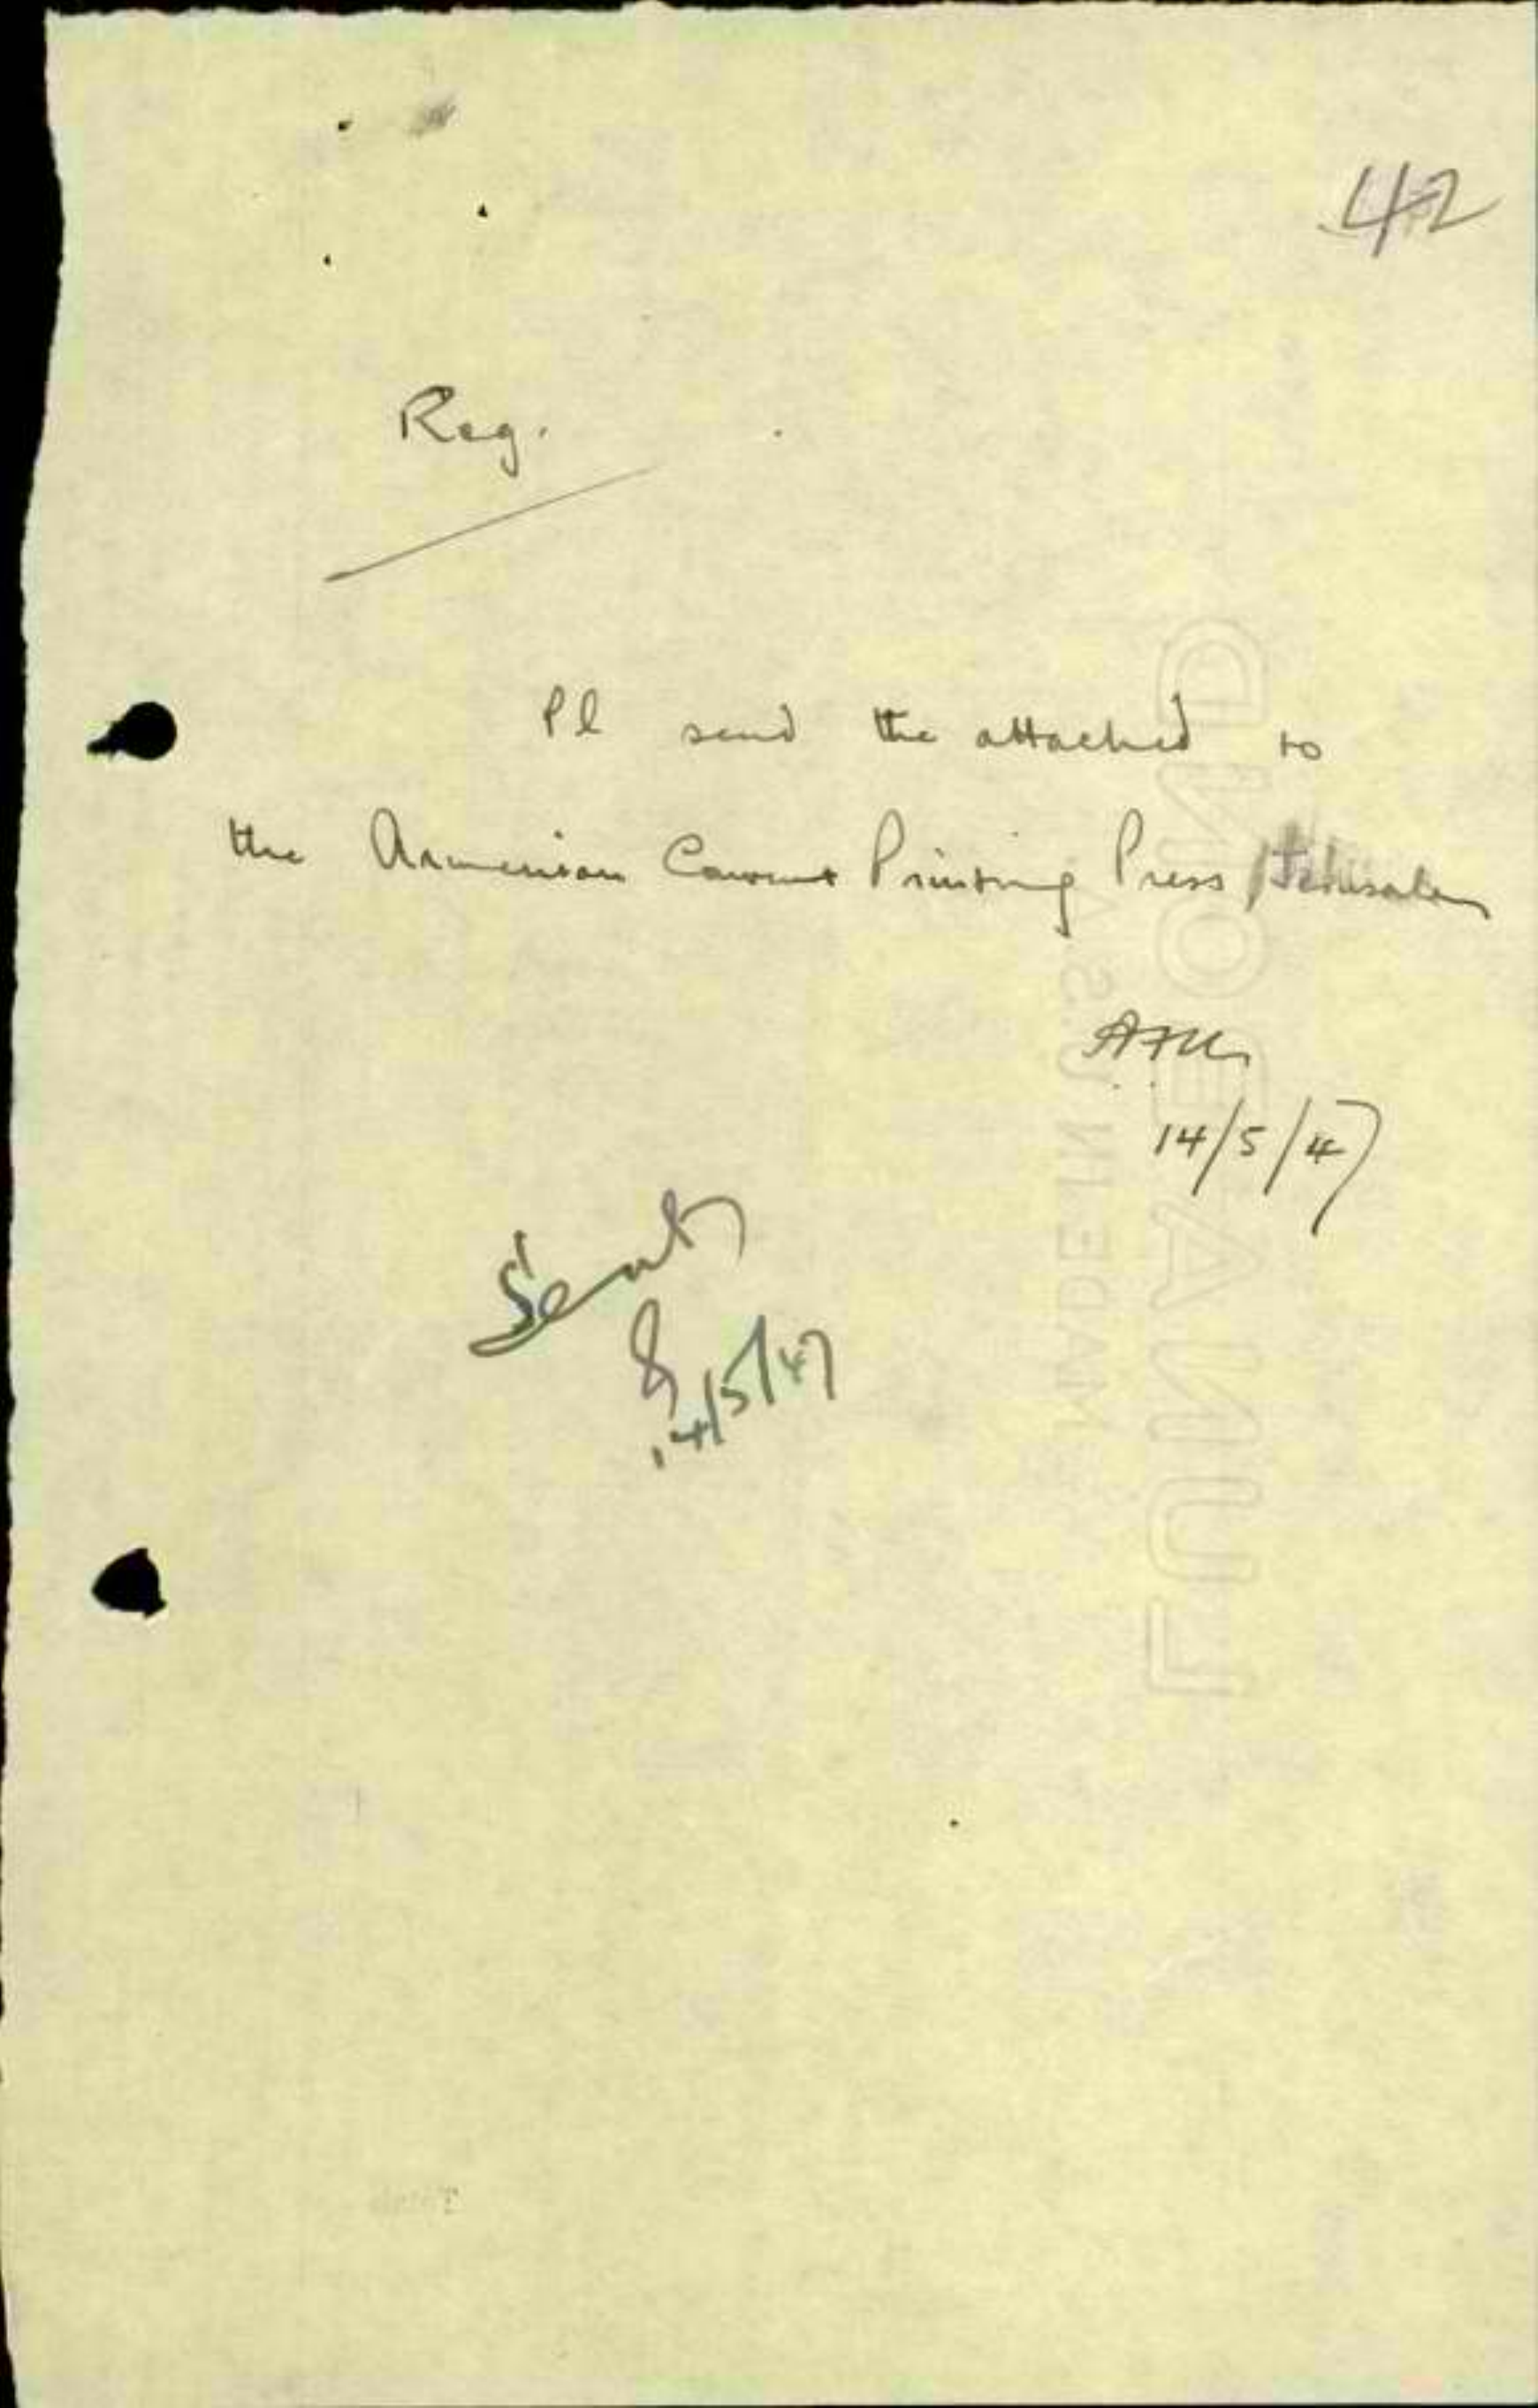 42
Reg.
Pl send the attached to
the Armenian Convent Printing Press Jerusalem
14/5/47
Sent
14/5/47